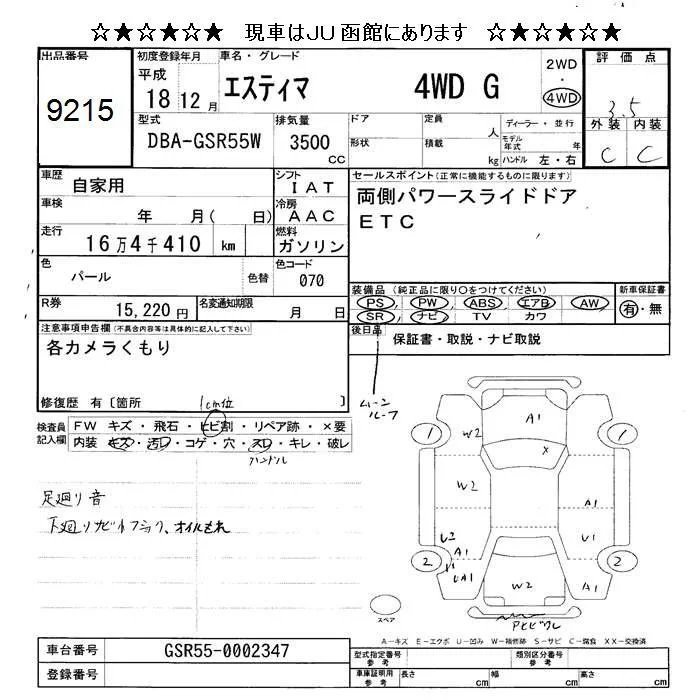 ☆★☆★☆★ 現車はJU函館にあります ☆★☆★☆★
出品番号 初度登録年月 車名・グレード 2WD ・ 4WD 評価点
9215 平成 18 12 月 エスティマ 4WD G 3.5
型式 排気量 ドア 定員 人 ディーラー・並行 外装 内装
DBA-GSR55W 3500 CC 形状 積載 kg モデル年式 年 ハンドル 左・右 C C
車歴 自家用 シフト IAT セールスポイント(正常に機能するものに限ります)
車検 年 月( 日) 冷房 AAC 両側パワースライドドア
走行 16万4千410 km 燃料 ガソリン ETC
色 パール 色替 色コード 070
装備品 (純正品に限り○をつけてください) 新車保証書
R券 15,220円 名変通知期限 月 日 PS PW ABS エアB AW 有・無
SR ナビ TV カワ
注意事項申告欄(不具合内容等は具体的に記入して下さい) 後日品 保証書・取説・ナビ取説
各カメラくもり
修復歴 有〔箇所 〕
1cm位
ムーンルーフ
検査員記入欄 FW キズ・飛石・ヒビ割・リペア跡・×要
内装 キズ・汚レ・コゲ・穴・スレ・キレ・破レ
ハンドル
足廻り音
下廻りサビ、オイルもれ
A1
W2
X
1 1
W2
A1
U2
A1
U1
2 2
UA1
W2
A1
スペア
A-キズ E-エクボ U-凹み W-補修跡 S-サビ C-腐食 XX-交換済
車台番号 GSR55-0002347 型式指定番号 参考 類別区分番号 参考
登録番号 車庫証明用 参考 長さ cm 幅 cm 高さ cm